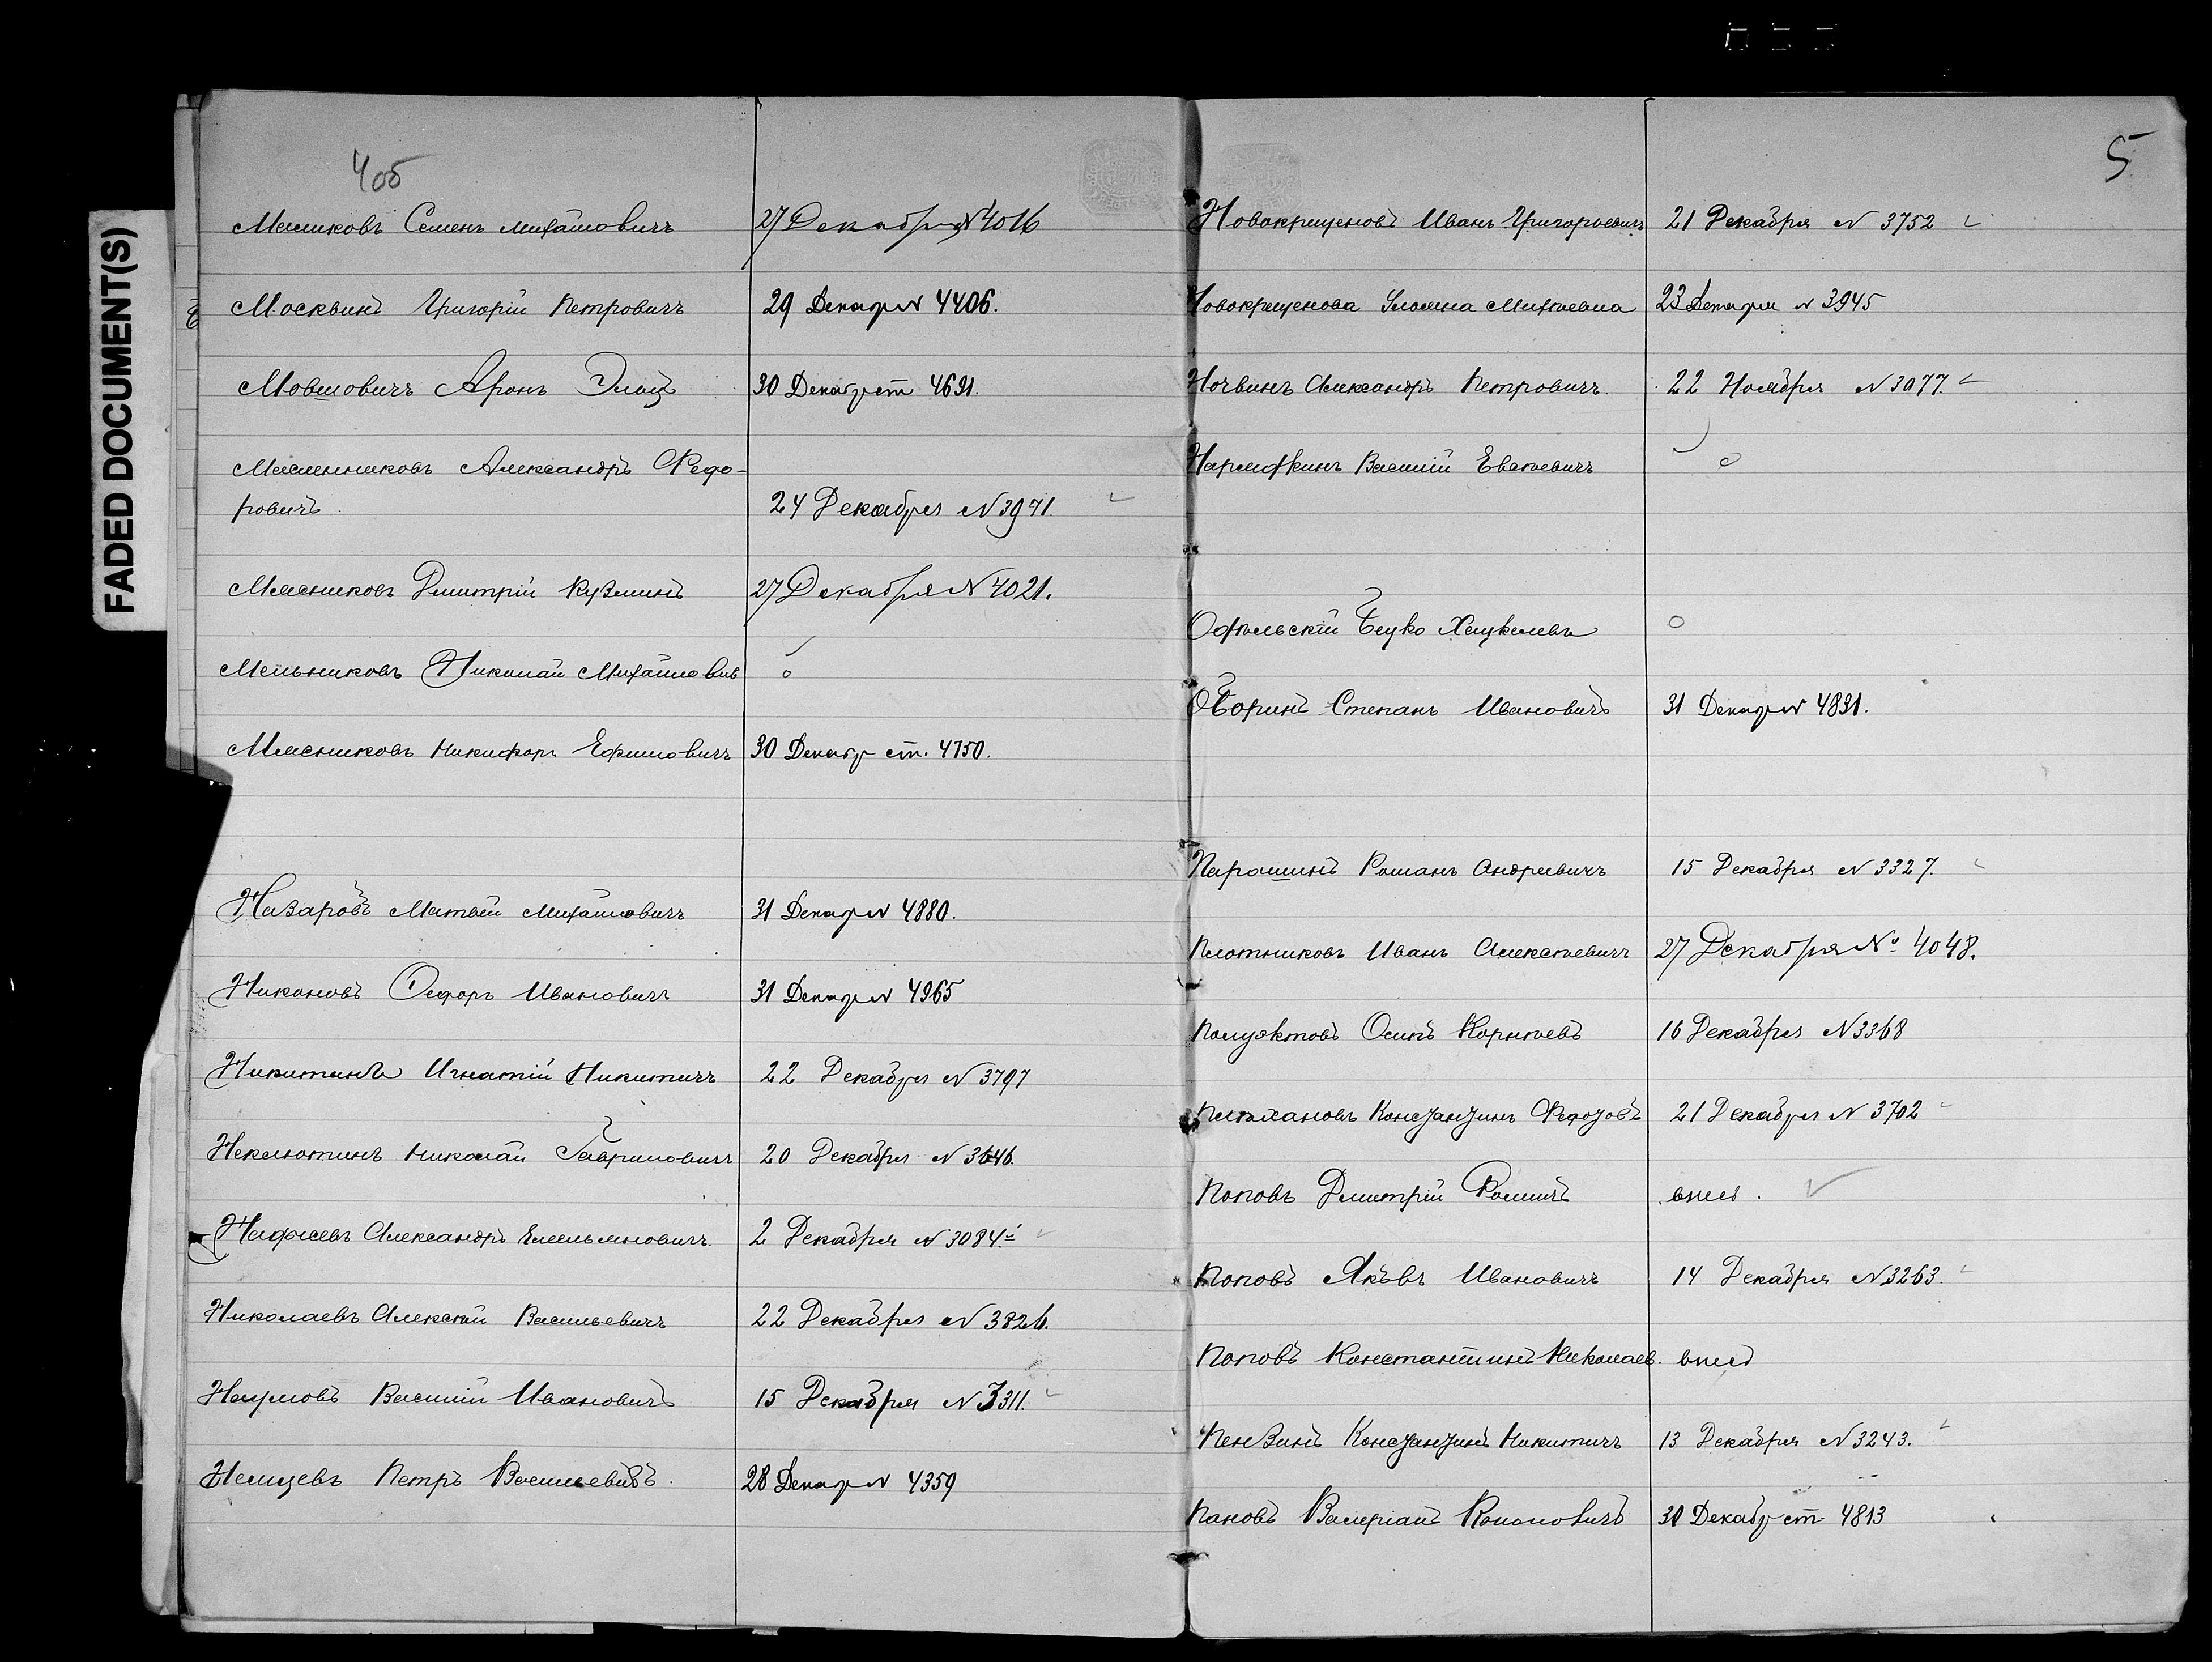 FADED DOCUMENT(S)
4об
Мешковъ Семенъ Михайловичъ 27 Декабря N 4016
Москвинъ Григорій Петровичъ 29 Декабр N 4406.
Мовшовичъ Аронъ 30 Декабр ст 4691.
Масленниковъ Александръ Федо-
ровичъ. 24 Декабря N 3971.
Мясниковъ Дмитрій Кузминъ 27 Декабря N 4021.
Мельниковъ Николай Михайловичъ
Мясниковъ Никифоръ Ефимовичъ 30 Декабр ст. 4750.
Назаровъ Матвѣй Михайловичъ 31 Декабр N 4880.
Никоновъ Федоръ Ивановичъ 31 Декабр N 4965
Никитинъ Игнатій Никитичъ 22 Декабря N 3797
Неклютинъ Николай Гавриловичъ 20 Декабря N 3646.
Александръ Емельяновичъ. 2 Декабря N 3084.
Николаевъ Алексѣй Васильевичъ 22 Декабря N 3826.
Наумовъ Василій Ивановичъ 15 Декабря N 3311.
Немцевъ Петръ Васильевичъ. 28 Декабр N 4359
5
Новокрещеновъ Иванъ Григорьевичъ 21 Декабря N 3752
Новокрещенова Михѣевна 23 Декабря N 3945
Ночвинъ Александръ Петровичъ. 22 Ноября N 3077.
Василій Евсѣевичъ
Хацкелевъ
Степанъ Ивановичъ 31 Декабр N 4831.
Парошинъ Романъ Андреевичъ 15 Декабря N 3327.
Плотниковъ Иванъ Алексѣевичъ 27 Декабря № 4048.
Полуэктовъ Осипъ Корнѣевъ 16 Декабря N 3368
Плѣхановъ Константинъ Федоровъ 21 Декабря N 3702
Поповъ Дмитрій
Поповъ Яковъ Ивановичъ 14 Декабря N 3263.
Поповъ Константинъ Николаев.
Пензинъ Константинъ Никитичъ 13 Декабря N 3243.
Пановъ Валеріанъ Кононовичъ 30 Декабр ст 4813